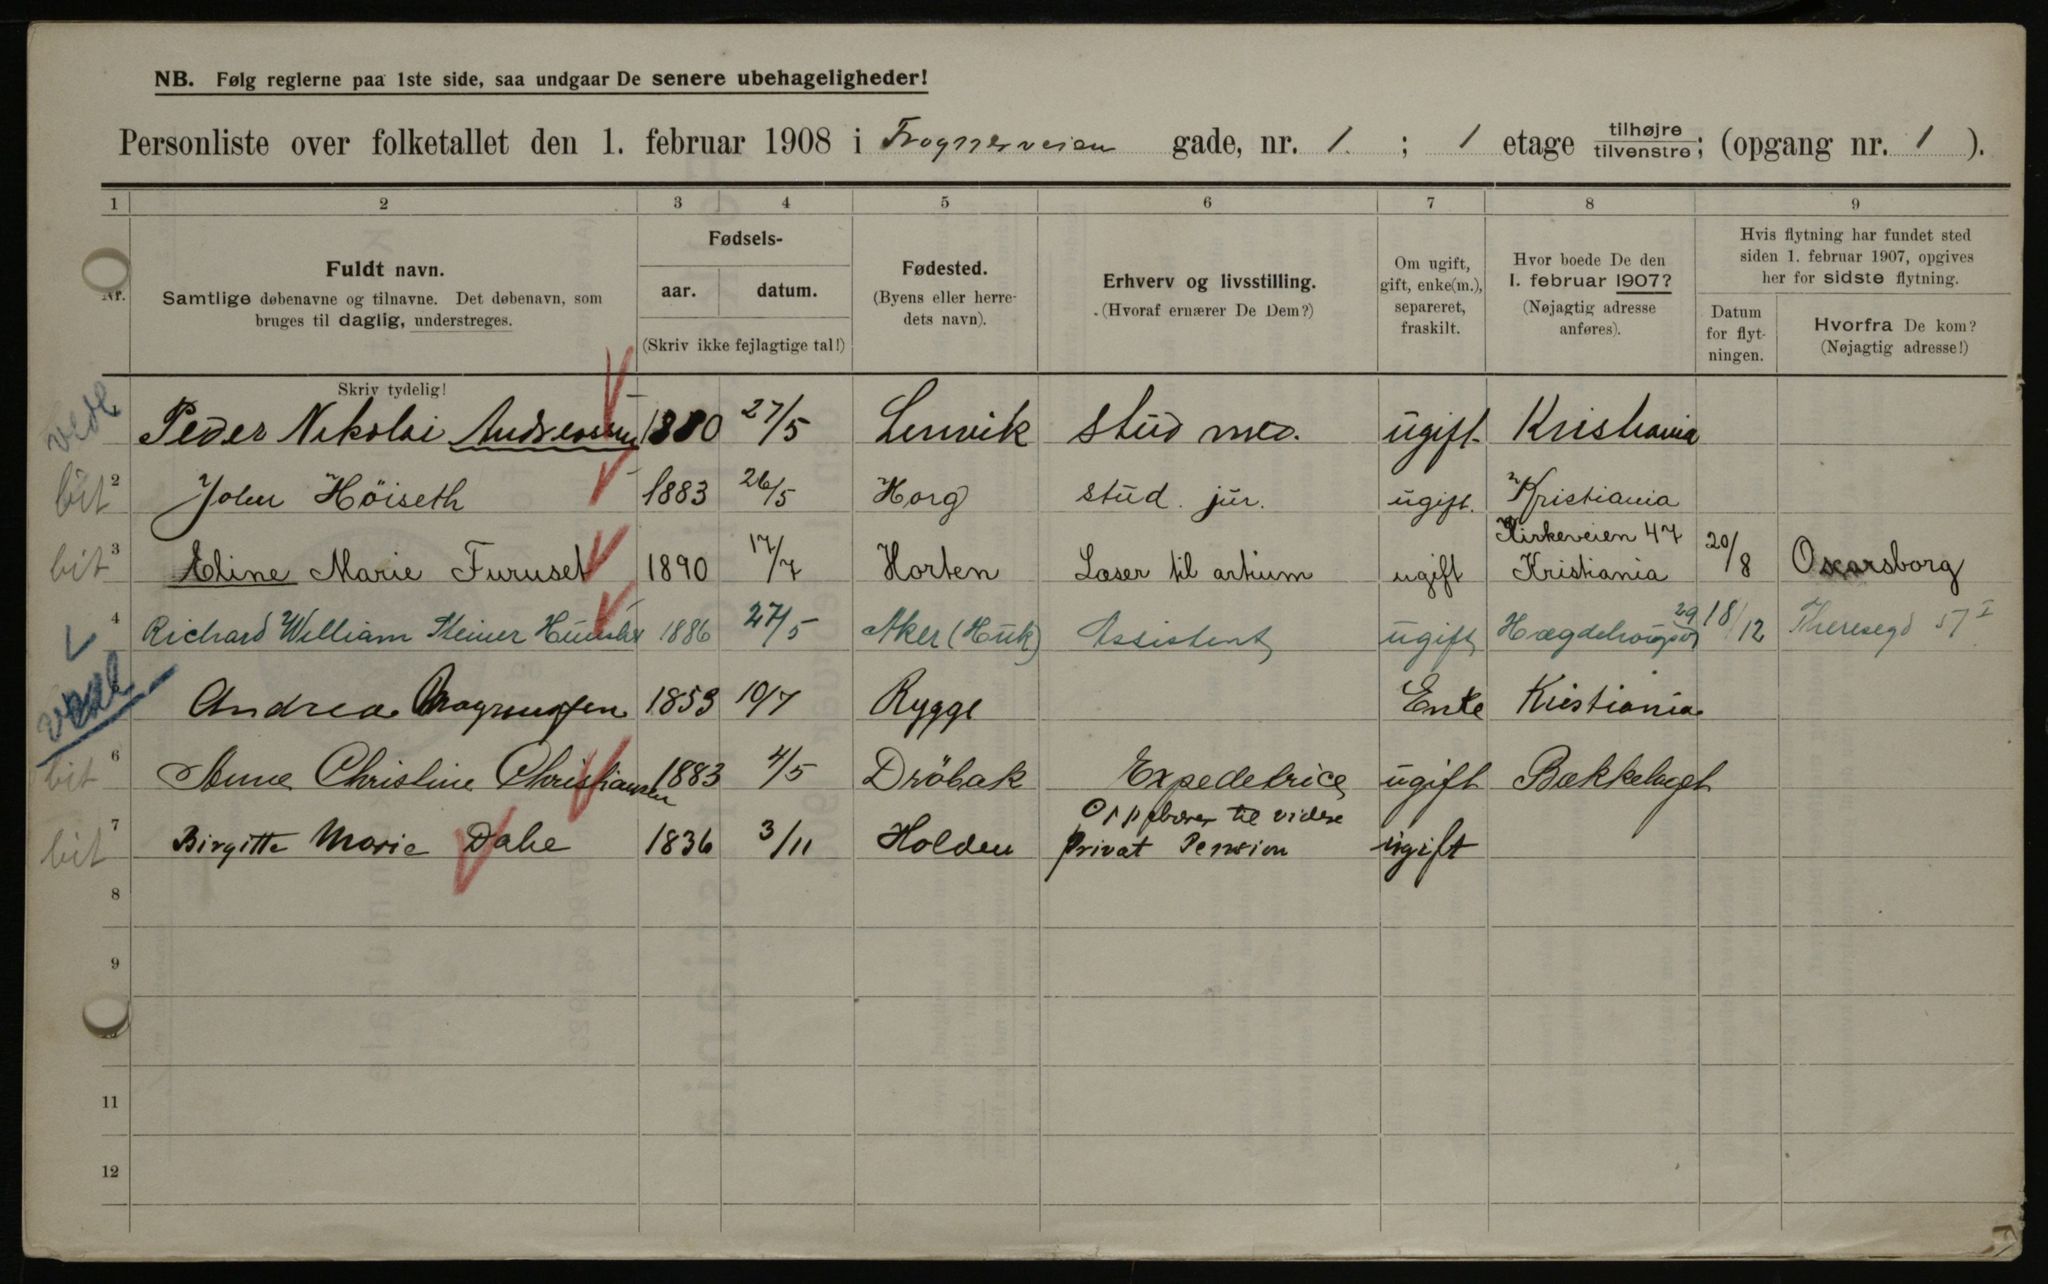 NB. Følg reglerne paa 1ste side, saa undgaar De senere ubehageligheder!
Personliste over folketallet den 1. februar 1908 i Frognerveien gade, nr. 1. ; 1 etage tilhøjre/tilvenstre; (opgang nr. 1 ).
1 2 3 4 5 6 7 8 9
Nr.
Fuldt navn.
Samtlige døbenavne og tilnavne. Det døbenavn, som
bruges til daglig, understreges.
Skriv tydelig!
Fødsels-
aar. datum.
(Skriv ikke fejlagtige tal!)
Fødested.
(Byens eller herre-
dets navn).
Erhverv og livsstilling.
(Hvoraf ernærer De Dem?)
Om ugift,
gift, enke(m.),
separeret,
fraskilt.
Hvor boede De den
1. februar 1907?
(Nøjagtig adresse
anføres).
Hvis flytning har fundet sted
siden 1. februar 1907, opgives
her for sidste flytning.
Datum
for flyt-
ningen.
Hvorfra De kom?
(Nøjagtig adresse!)
Peder Nikolai Andreassen 1880 27/5 Lenvik stud med. ugift. Kristiania
bit 2 John Höiseth 1883 26/5 Horg stud. jur. ugift. Kristiania
Kirkeveien 47
bit 3 Eline Marie Furuset 1890 17/7 Horten Læser til artium ugift Kristiania 20/8 Oscarsborg
4 Richard William Steiner 1886 27/5 Aker (Huk) Assistent ugift 29 18/12 Theresegd 57 I
Andrea Magnussen 1853 10/7 Rygge Enke Kristiania
bit 6 Anne Christine Christiansen 1883 4/5 Dröbak Expeditrice ugift Bækkelaget
Oppebærer til videre
bit 7 Birgitte Marie Dahe 1836 3/11 Holden privat Pension ugift
8
9
11
12